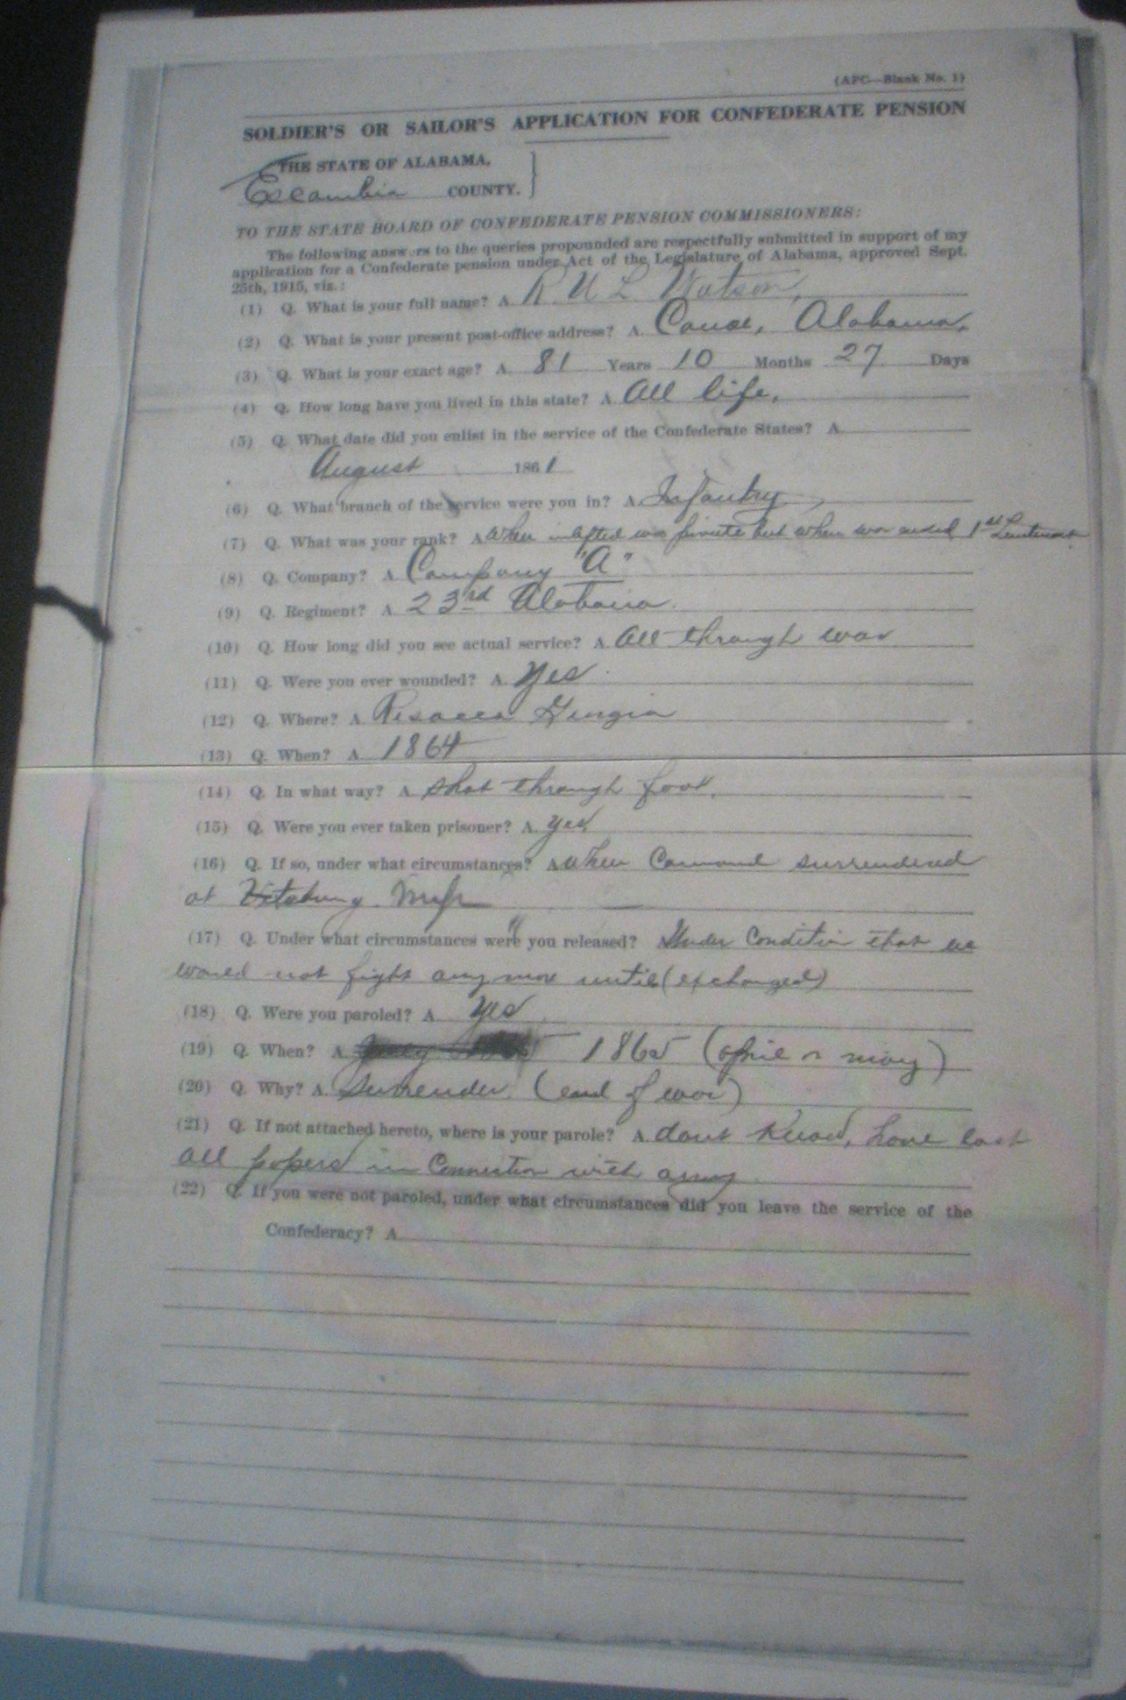 (APC—Blank No. 1)
SOLDIER'S OR SAILOR'S APPLICATION FOR CONFEDERATE PENSION
THE STATE OF ALABAMA,
Escambia COUNTY.
TO THE STATE BOARD OF CONFEDERATE PENSION COMMISSIONERS:
The following answers to the queries propounded are respectfully submitted in support of my
application for a Confederate pension under Act of the Legislature of Alabama, approved Sept.
25th, 1915, viz.:
(1) Q. What is your full name? A. Watson,
(2) Q. What is your present post-office address? A. Canoe, Alabama.
(3) Q. What is your exact age? A. 81 Years 10 Months 27 Days
(4) Q. How long have you lived in this state? A. All life.
(5) Q. What date did you enlist in the service of the Confederate States? A.
August 1861
(6) Q. What branch of the service were you in? A. Infantry,
(7) Q. What was your rank? A. When was private but when 1st Lieutenant.
(8) Q. Company? A. Company "A"
(9) Q. Regiment? A. 23rd Alabama.
(10) Q. How long did you see actual service? A. All through war
(11) Q. Were you ever wounded? A. Yes.
(12) Q. Where? A. Resacca Georgia
(13) Q. When? A. 1864
(14) Q. In what way? A. Shot through foot.
(15) Q. Were you ever taken prisoner? A. yes
(16) Q. If so, under what circumstances? A. When Command surrendered
at Miss
(17) Q. Under what circumstances were you released? Under Condition that we
would not fight any more until (exchanged)
(18) Q. Were you paroled? A. Yes
(19) Q. When? A. 1865 (April or may)
(20) Q. Why? A. Surrender. (end of war)
(21) Q. If not attached hereto, where is your parole? A. dont Know, have lost
all papers in Connection with army
(22) Q. If you were not paroled, under what circumstances did you leave the service of the
Confederacy? A.